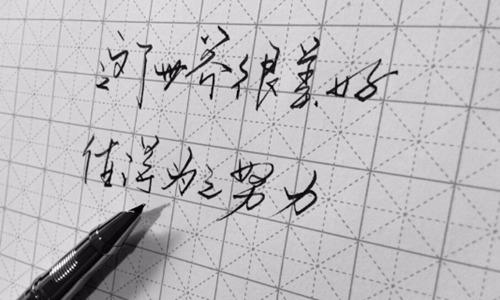 世界很美好
值得为之努力